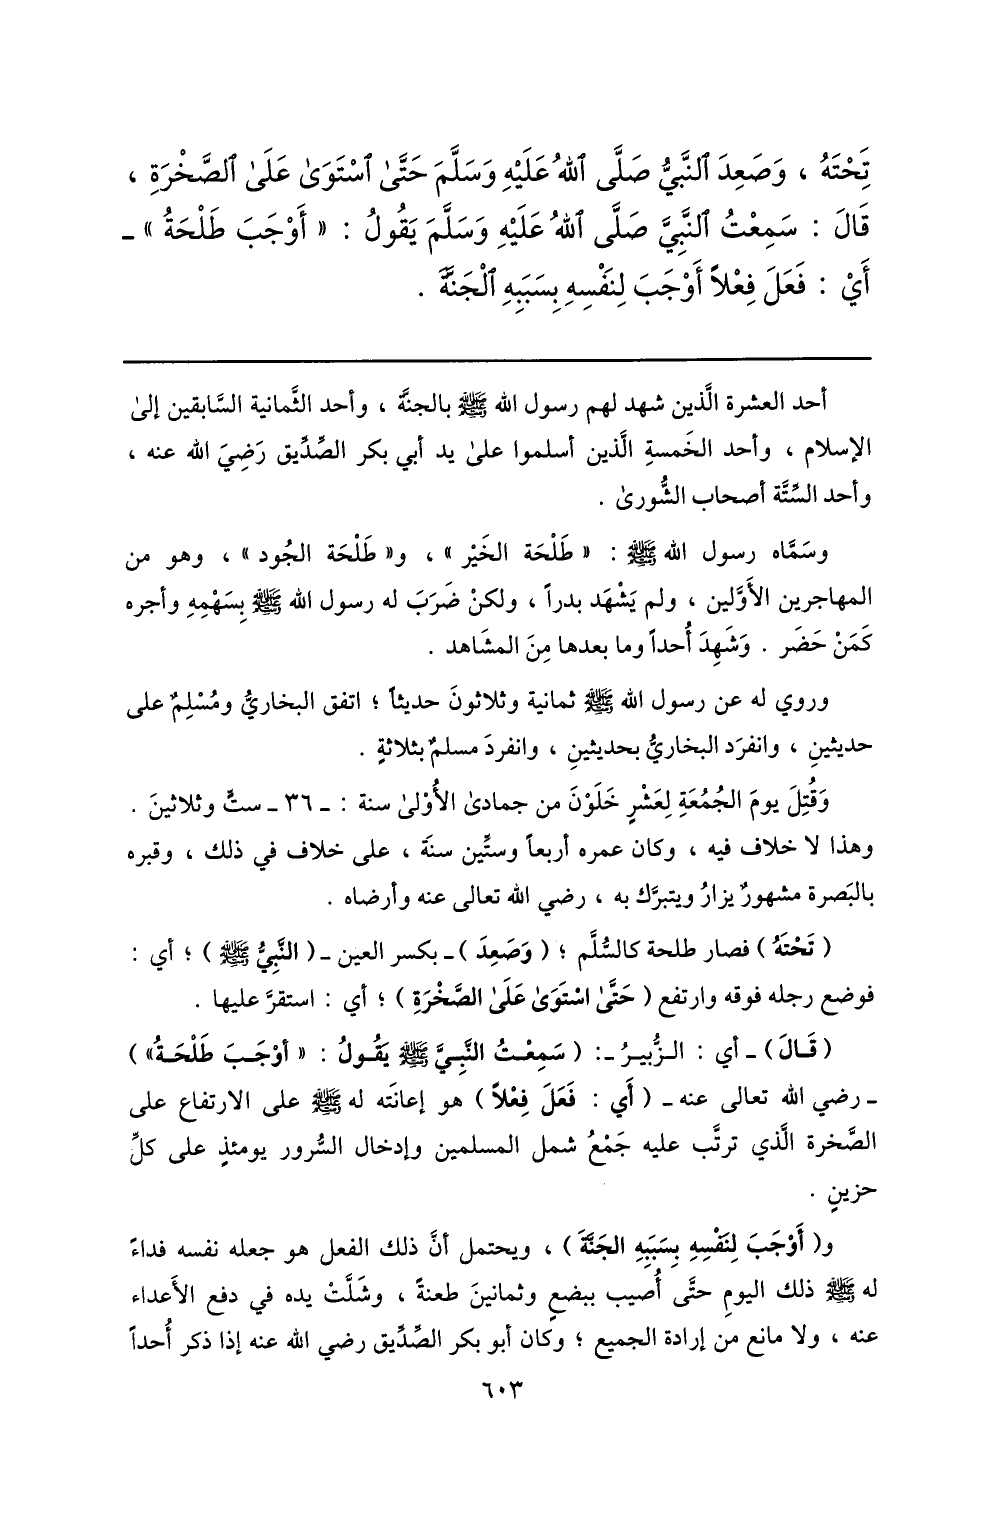 تَحْتَهُ ، وَصَعِدَ ٱلنَّبِيُّ صَلَّى ٱللهُ عَلَيْهِ وَسَلَّمَ حَتَّىٰ ٱسْتَوَىٰ عَلَىٰ ٱلصَّخْرَةِ ،
قَالَ : سَمِعْتُ ٱلنَّبِيَّ صَلَّى ٱللهُ عَلَيْهِ وَسَلَّمَ يَقُولُ : « أَوْجَبَ طَلْحَةُ » ـ
أَيْ : فَعَلَ فِعْلاً أَوْجَبَ لِنَفْسِهِ بِسَبَبِهِ ٱلْجَنَّةَ .
أحد العشرة الَّذين شهد لهم رسول الله ﷺ بالجنَّة ، وأحد الثَّمانية السَّابقين إلىٰ
الإسلام ، وأحد الخَمسةِ الَّذين أسلموا علىٰ يد أبي بكر الصِّدِّيق رَضِيَ الله عنه ،
وأحد السِّتَّة أصحاب الشُّورىٰ .
وسَمَّاه رسول الله ﷺ : « طَلْحَة الخَيْر » ، و« طَلْحَة الجُود » ، وهو من
المهاجرين الأَوَّلين ، ولم يَشْهَد بدراً ، ولكنْ ضَرَبَ له رسول الله ﷺ بِسَهْمِهِ وأجره
كَمَنْ حَضَر . وَشَهِدَ أُحداً وما بعدها مِنَ المشَاهد .
وروي له عن رسول الله ﷺ ثمانية وثلاثونَ حديثاً ؛ اتفق البخاريُّ ومُسْلِمٌ على
حديثينِ ، وانفرَد البخاريُّ بحديثينِ ، وانفردَ مسلمٌ بثلاثةٍ .
وَقُتِلَ يومَ الجُمُعَةِ لِعَشْرٍ خَلَوْنَ من جمادىٰ الأُوْلىٰ سنة : ـ ٣٦ ـ ستٍّ وثلاثينَ .
وهذا لا خلاف فيه ، وكان عمره أربعاً وستِّين سنَة ، على خلاف في ذلك ، وقبره
بالبَصرة مشهورٌ يزارُ ويتبرَّك به ، رضي الله تعالى عنه وأرضاه .
( تَحْتَهُ ) فصار طلحة كالسُّلَّم ؛ ( وَصَعِدَ ) ـ بكسر العين ـ ( النَّبِيُّ ﷺ ) ؛ أي :
فوضع رجله فوقه وارتفع ( حَتَّىٰ اسْتَوَىٰ عَلَىٰ الصَّخْرَةِ ) ؛ أي : استقرَّ عليها .
( قَـالَ ) ـ أي : الـزُّبيـرُ ـ: ( سَمِعْـتُ النَّبِـيَّ ﷺ يَقُـولُ : « أَوْجَـبَ طَلْحَـةُ» )
ـ رضي الله تعالى عنه ـ ( أَي : فَعَلَ فِعْلاً ) هو إعانَته له ﷺ على الارتفاع على
الصَّخرة الَّذي ترتَّب عليه جَمْعُ شمل المسلمين وإدخال السُّرور يومئذٍ على كلِّ
حزينٍ .
و( أَوْجَبَ لِنَفْسِهِ بِسَبَبِهِ الجَنَّةَ ) ، ويحتمل أنَّ ذلك الفعل هو جعله نفسه فداءً
له ﷺ ذلك اليومِ حتَّى أُصيب ببضعٍ وثمانينَ طعنةً ، وشَلَّتْ يده في دفع الأعداء
عنه ، ولا مانع من إرادة الجميع ؛ وكان أبو بكر الصِّدِّيق رضي الله عنه إذا ذكر أُحداً
٦٠٣